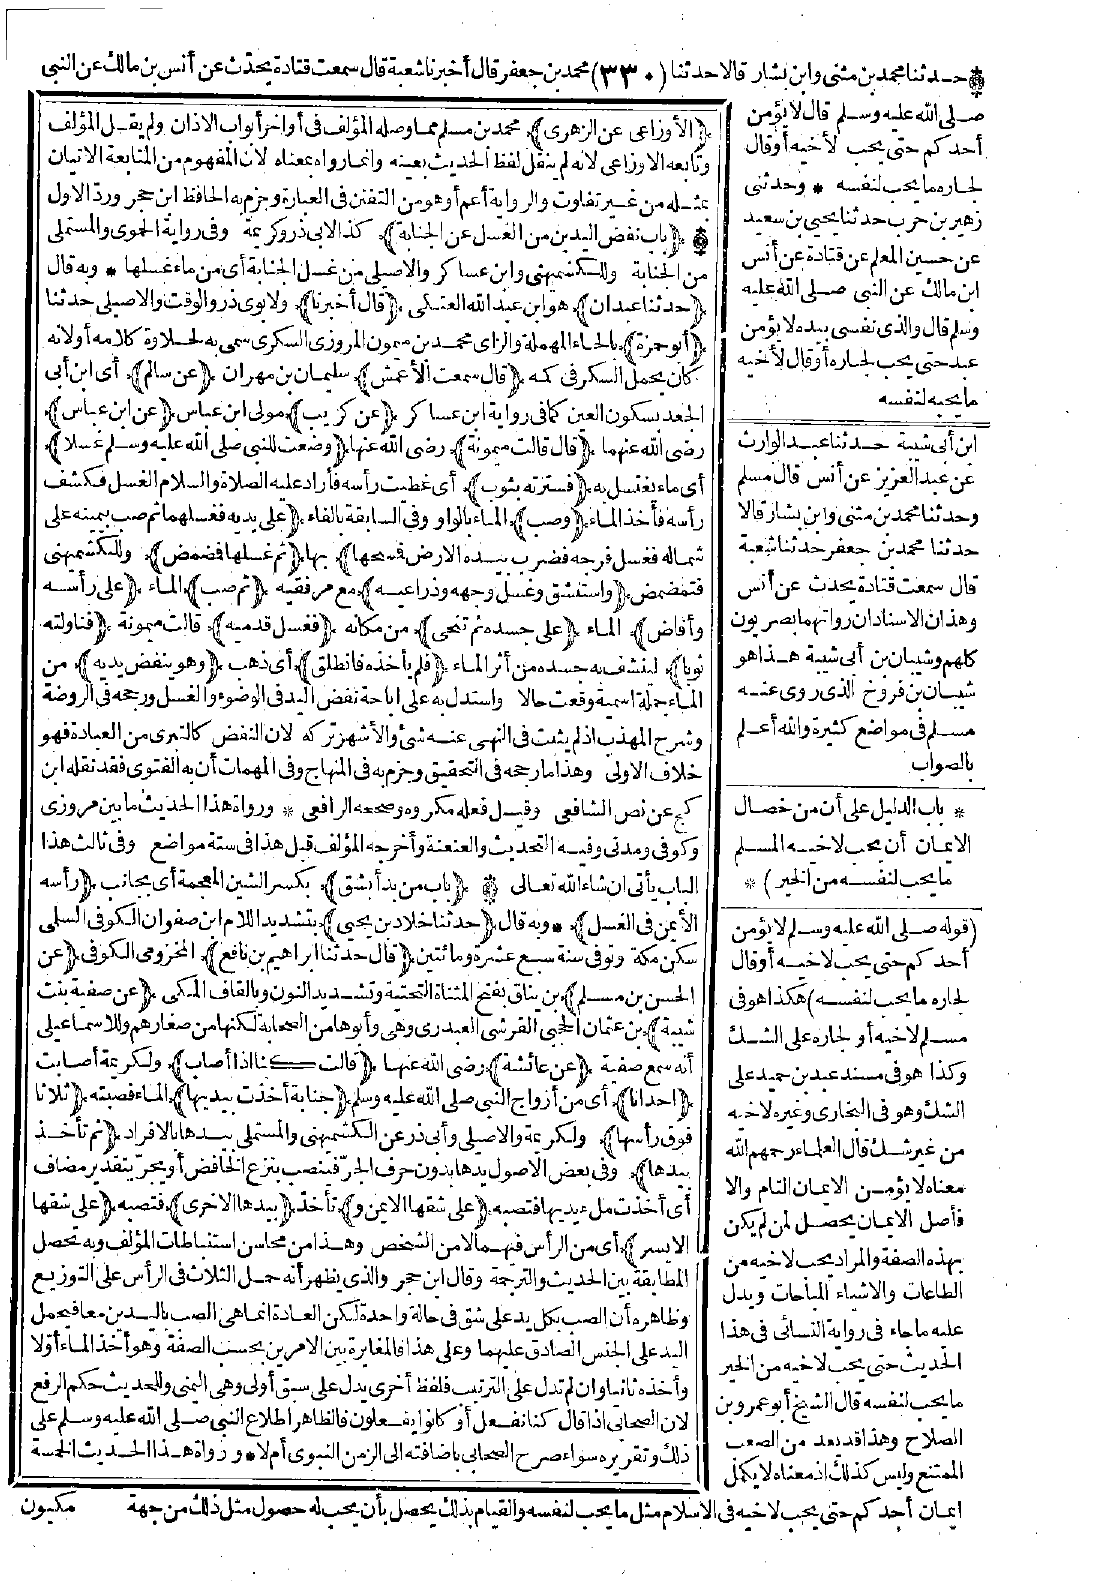 حدثنا محمد بن مثنى وابن بشار قالا حدثنا (٣٣٠) محمد بن جعفر قال أخبرنا شعبة قال سمعت قتادة يحدث عن أنس بن مالك عن النبي
صلى الله عليه وسلم قال لا يؤمن
أحدكم حتى يحب لأخيه أو قال
لجاره ما يحب لنفسه * وحدثنى
زهير بن حرب حدثنا يحيى بن سعيد
عن حسين المعلم عن قتادة عن أنس
ابن مالك عن النبى صلى الله عليه
وسلم قال والذى نفسى بيده لا يؤمن
عبد حتى يحب لجاره أو قال لأخيه
ما يحبه لنفسه
ابن أبى شيبة حدثنا عبد الوارث
عن عبد العزيز عن أنس قال مسلم
وحدثنا محمد بن مثنى وابن بشار قالا
حدثنا محمد بن جعفر حدثنا شعبة
قال سمعت قتادة يحدث عن أنس
وهذان الاسنادان رواتهما بصريون
كلهم وشيبان بن أبى شيبة هذا هو
شيبان بن فروخ الذى روى عنه
مسلم فى مواضع كثيرة والله أعلم
بالصواب
* باب الدليل على أن من خصال
الايمان أن يحب لاخيه المسلم
ما يحب لنفسه من الخير) *
(قوله صلى الله عليه وسلم لا يؤمن
أحدكم حتى يحب لاخيه أو قال
لجاره ما يحب لنفسه) هكذا هو فى
مسلم لاخيه أو لجاره على الشك
وكذا هو فى مسند عبد بن حميد على
الشك وهو فى البخارى وغيره لاخيه
من غير شك قال العلماء رحمهم الله
معناه لا يؤمن الايمان التام والا
فأصل الايمان يحصل لمن لم يكن
بهذه الصفة والمراد يحب لاخيه من
الطاعات والاشياء المباحات ويدل
عليه ما جاء فى رواية النسائى فى هذا
الحديث حتى يحب لاخيه من الخير
ما يحب لنفسه قال الشيخ أبو عمرو بن
الصلاح وهذا قد يعد من الصعب
الممتنع وليس كذلك اذ معناه لا يكمل
ايمان أحدكم حتى يحب لاخيه فى الاسلام مثل ما يحب لنفسه والقيام بذلك يحصل بأن يحب له حصول مثل ذلك من جهة
(الأوزاعى عن الزهرى) محمد بن مسلم مما وصله المؤلف فى أواخر أبواب الاذان ولم يقل المؤلف
وتابعه الاوزاعى لانه لم ينقل لفظ الحديث بعينه وانما رواه بمعناه لان المفهوم من المتابعة الاتيان
بمثله من غير تفاوت والرواية أعم أو هو من التفنن فى العبارة وجزم به الحافظ ابن حجر ورد الاول
(باب نفض اليدين من الغسل عن الجنابة) كذا لابى ذر وكريمة وفى رواية الحموى والمستملى
من الجنابة وللكشميهنى وابن عساكر والاصيلى من غسل الجنابة أى من ماء غسلها * وبه قال
(حدثنا عبدان) هو ابن عبد الله العتكى (قال أخبرنا) ولابوى ذر والوقت والاصيلى حدثنا
(أبو حمزة) بالحاء المهملة والزاى محمد بن ميمون المروزى السكرى سمى به لحلاوة كلامه أو لانه
كان يحمل السكر فى كمه (قال سمعت الأعمش) سليمان بن مهران (عن سالم) أى ابن أبى
الجعد بسكون العين كما فى رواية ابن عساكر (عن كريب) مولى ابن عباس (عن ابن عباس)
رضى الله عنهما (قال قالت ميمونة) رضى الله عنها (وضعت للنبى صلى الله عليه وسلم غسلا)
أى ماء يغتسل به (فسترته بثوب) أى غطيت رأسه فأراد عليه الصلاة والسلام الغسل فكشف
رأسه فأخذ الماء (وصب) الماء بالواو وفى السابقة بالفاء (على يديه فغسلهما ثم صب بيمينه على
شماله فغسل فرجه فضرب بيده الارض فمسحها) بها (ثم غسلها فمضمض) وللكشميهنى
فتمضمض (واستنشق وغسل وجهه وذراعيه) مع مرفقيه (ثم صب) الماء (على رأسه
وأفاض) الماء (على جسده ثم تنحى) من مكانه (فغسل قدميه) قالت ميمونة (فناولته
ثوبا) لينشف به جسده من أثر الماء (فلم يأخذه فانطلق) أى ذهب (وهو ينفض يديه) من
الماء جملة اسمية وقعت حالا واستدل به على اباحة نفض اليد فى الوضوء والغسل ورجحه فى الروضة
وشرح المهذب اذ لم يثبت فى النهى عنه شئ والأشهر تركه لان النفض كالتبرى من العبادة فهو
خلاف الاولى وهذا ما رجحه فى التحقيق وجزم به فى المنهاج وفى المهمات أن به الفتوى فقد نقله ابن
كج عن نص الشافعى وقيل فعله مكروه وصححه الرافعى * ورواة هذا الحديث ما بين مروزى
وكوفى ومدنى وفيه التحديث والعنعنة وأخرجه المؤلف قبل هذا فى ستة مواضع وفى ثالث هذا
الباب يأتى ان شاء الله تعالى (باب من بدأ بشق) بكسر الشين المعجمة أى بجانب (رأسه
الأيمن فى الغسل) * وبه قال (حدثنا خلاد بن يحيى) بتشديد اللام ابن صفوان الكوفى السلمى
سكن مكة وتوفى سنة سبع عشرة ومائتين (قال حدثنا ابراهيم بن نافع) المخزومى الكوفى (عن
الحسن بن مسلم) بن يناق بفتح المثناة التحتية وتشديد النون وبالقاف المكى (عن صفية بنت
شيبة) بن عثمان الحجبى القرشى العبدرى وهى وأبوها من الصحابة لكنها من صغارهم وللاسماعيلى
أنه سمع صفية (عن عائشة) رضى الله عنها (قالت كنا اذا أصاب) ولكريمة أصابت
(احدانا) أى من أزواج النبى صلى الله عليه وسلم (جنابة أخذت بيديها) الماء فصبته (ثلاثا
فوق رأسها) ولكريمة والاصيلى وأبى ذر عن الكشميهنى والمستملى بيدها بالافراد (ثم تأخذ
بيدها) وفى بعض الاصول يدها بدون حرف الجر فينصب بنزع الخافض أو يجر بتقدير مضاف
أى أخذت ملء يديها فتصبه (على شقها الايمن و) تأخذ (بيدها الاخرى) فتصبه (على شقها
الايسر) أى من الرأس فيهما لا من الشخص وهذا من محاسن استنباطات المؤلف وبه تحصل
المطابقة بين الحديث والترجمة وقال ابن حجر والذى يظهر أنه حمل الثلاث فى الرأس على التوزيع
وظاهره أن الصب بكل يد على شق فى حالة واحدة لكن العادة انما هى الصب باليدين معا فيحمل
اليد على الجنس الصادق عليهما وعلى هذا فالمغايرة بين الامرين بحسب الصفة وهو أخذ الماء أولا
وأخذه ثانيا وان لم تدل على الترتيب فلفظ أخرى يدل على سبق أولى وهى اليمنى وللحديث حكم الرفع
لان الصحابى اذا قال كنا نفعل أو كانوا يفعلون فالظاهر اطلاع النبى صلى الله عليه وسلم على
ذلك وتقريره سواء صرح الصحابى باضافته الى الزمن النبوى أم لا * ورواة هذا الحديث الخمسة
مكيون